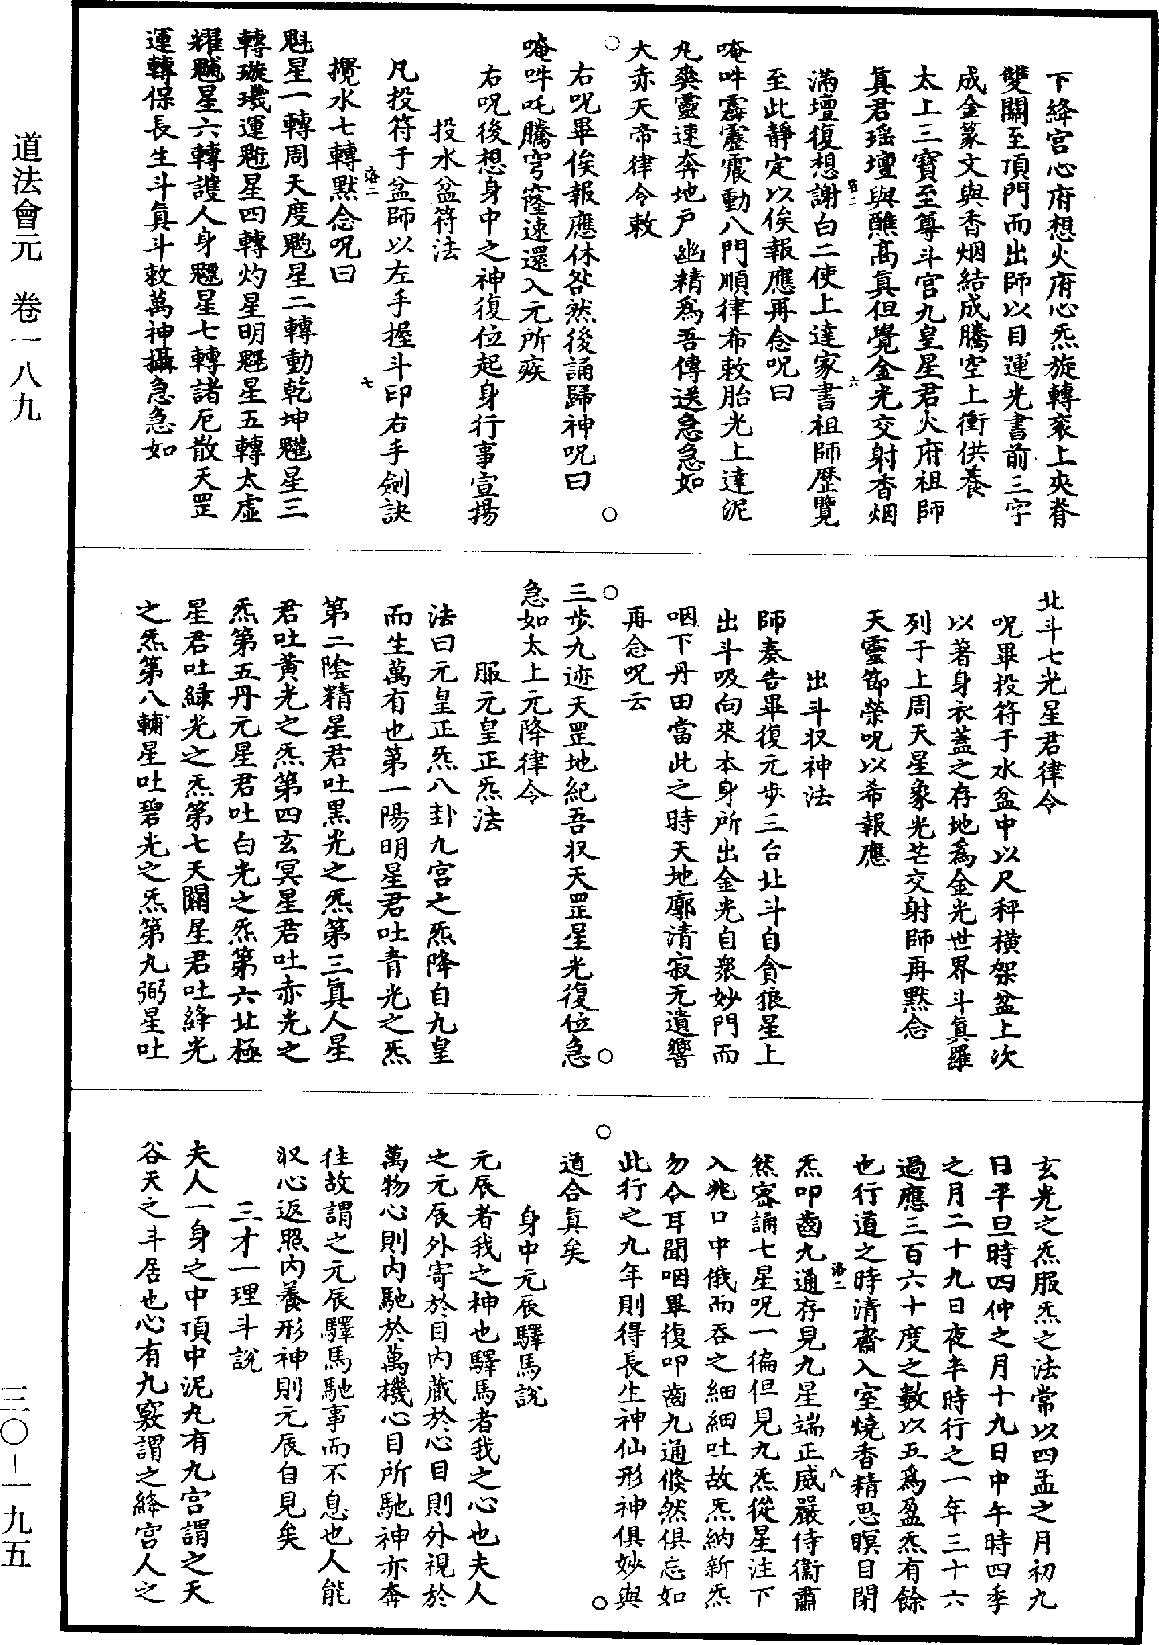 道法會元　卷一八九
三〇－一九五
下絳宮心府想火府心炁旋轉衮上夾脊
雙關至頂門而出師以目運光書前三字
成金篆文與香烟結成騰空上衝供養
太上三寶至尊斗宮九皇星君火府祖師
真君瑶壇與醮高真但覺金光交射香烟
滿壇復想謝白二使上達家書祖師歷覽
至此靜定以俟報應再念呪曰
唵吽霹靂震動八門順律希敕胎光上達泥
丸爽靈速奔地戶幽精爲吾傳送急急如
大赤天帝律令敕
右呪畢俟報應休咎然後誦歸神呪曰
唵吽吒騰穹窿速還入元所疾
右呪後想身中之神復位起身行事宣揚
投水盆符法
凡投符于盆師以左手握斗印右手劍訣
攪水七轉默念呪曰
魁星一轉周天度䰢星二轉動乾坤䰡星三
轉璇璣運魓星四轉灼星明䰣星五轉太虛
耀䰤星六轉護人身魒星七轉諸厄散天罡
運轉保長生斗真斗敕萬神攝急急如
北斗七光星君律令
呪畢投符于水盆中以尺秤橫架盆上次
以著身衣蓋之存地爲金光世界斗真羅
列于上周天星象光芒交射師再默念
天靈節榮呪以希報應
出斗収神法
師奏告畢復元步三台北斗自貪狼星上
出斗吸向來本身所出金光自衆妙門而
咽下丹田當此之時天地廓清寂无遺響
再念呪云
三步九迹天罡地紀吾収天罡星光復位急
急如太上元降律令
服元皇正炁法
法曰元皇正炁八卦九宮之炁降自九皇
而生萬有也第一陽明星君吐青光之炁
第二陰精星君吐黑光之炁第三真人星
君吐黃光之炁第四玄冥星君吐赤光之
炁第五丹元星君吐白光之炁第六北極
星君吐綠光之炁第七天關星君吐絳光
之炁第八輔星吐碧光之炁第九弼星吐
玄光之炁服炁之法常以四孟之月初九
日平旦時四仲之月十九日中午時四季
之月二十九日夜半時行之一年三十六
過應三百六十度之數以五爲盈炁有餘
也行道之時清齋入室燒香精思瞑目閉
炁叩齒九通存見九星端正威嚴侍衞肅
然密誦七星呪一徧但見九炁從星注下
入兆口中俄而吞之細細吐故炁納新炁
勿令耳聞咽畢復叩齒九通倏然俱忘如
此行之九年則得長生神仙形神俱妙與
道合真矣
身中元辰驛馬說
元辰者我之神也驛馬者我之心也夫人
之元辰外寄於目內藏於心目則外視於
萬物心則內馳於萬機心目所馳神亦奔
往故謂之元辰驛馬馳事而不息也人能
収心返照內養形神則元辰自見矣
三才一理斗說
夫人一身之中頂中泥丸有九宮謂之天
谷天之斗居也心有九竅謂之絳宮人之